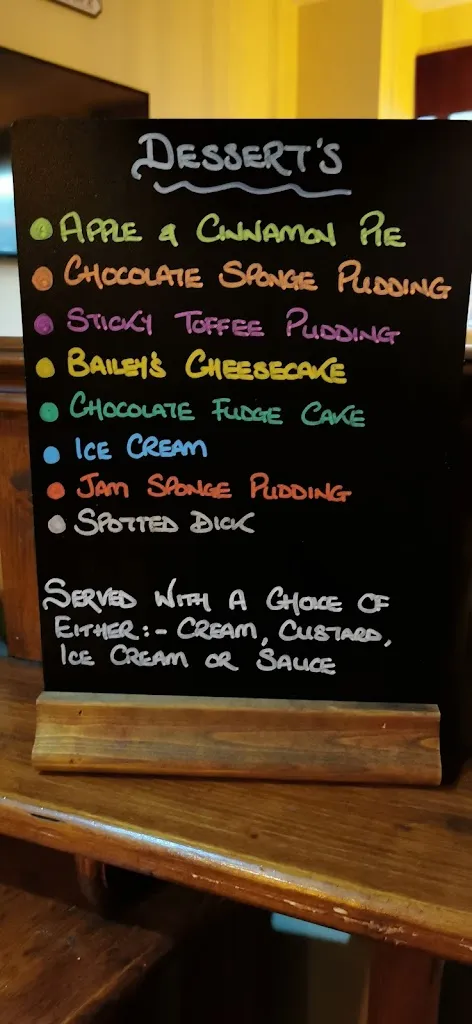 DESSERT'S
APPLE & CINNAMON PIE
CHOCOLATE SPONGE PUDDING
STICKY TOFFEE PUDDING
BAILEY'S CHEESECAKE
CHOCOLATE FUDGE CAKE
ICE CREAM
JAM SPONGE PUDDING
SPOTTED DICK
SERVED WITH A CHOICE OF
EITHER:- CREAM, CUSTARD,
ICE CREAM OR SAUCE